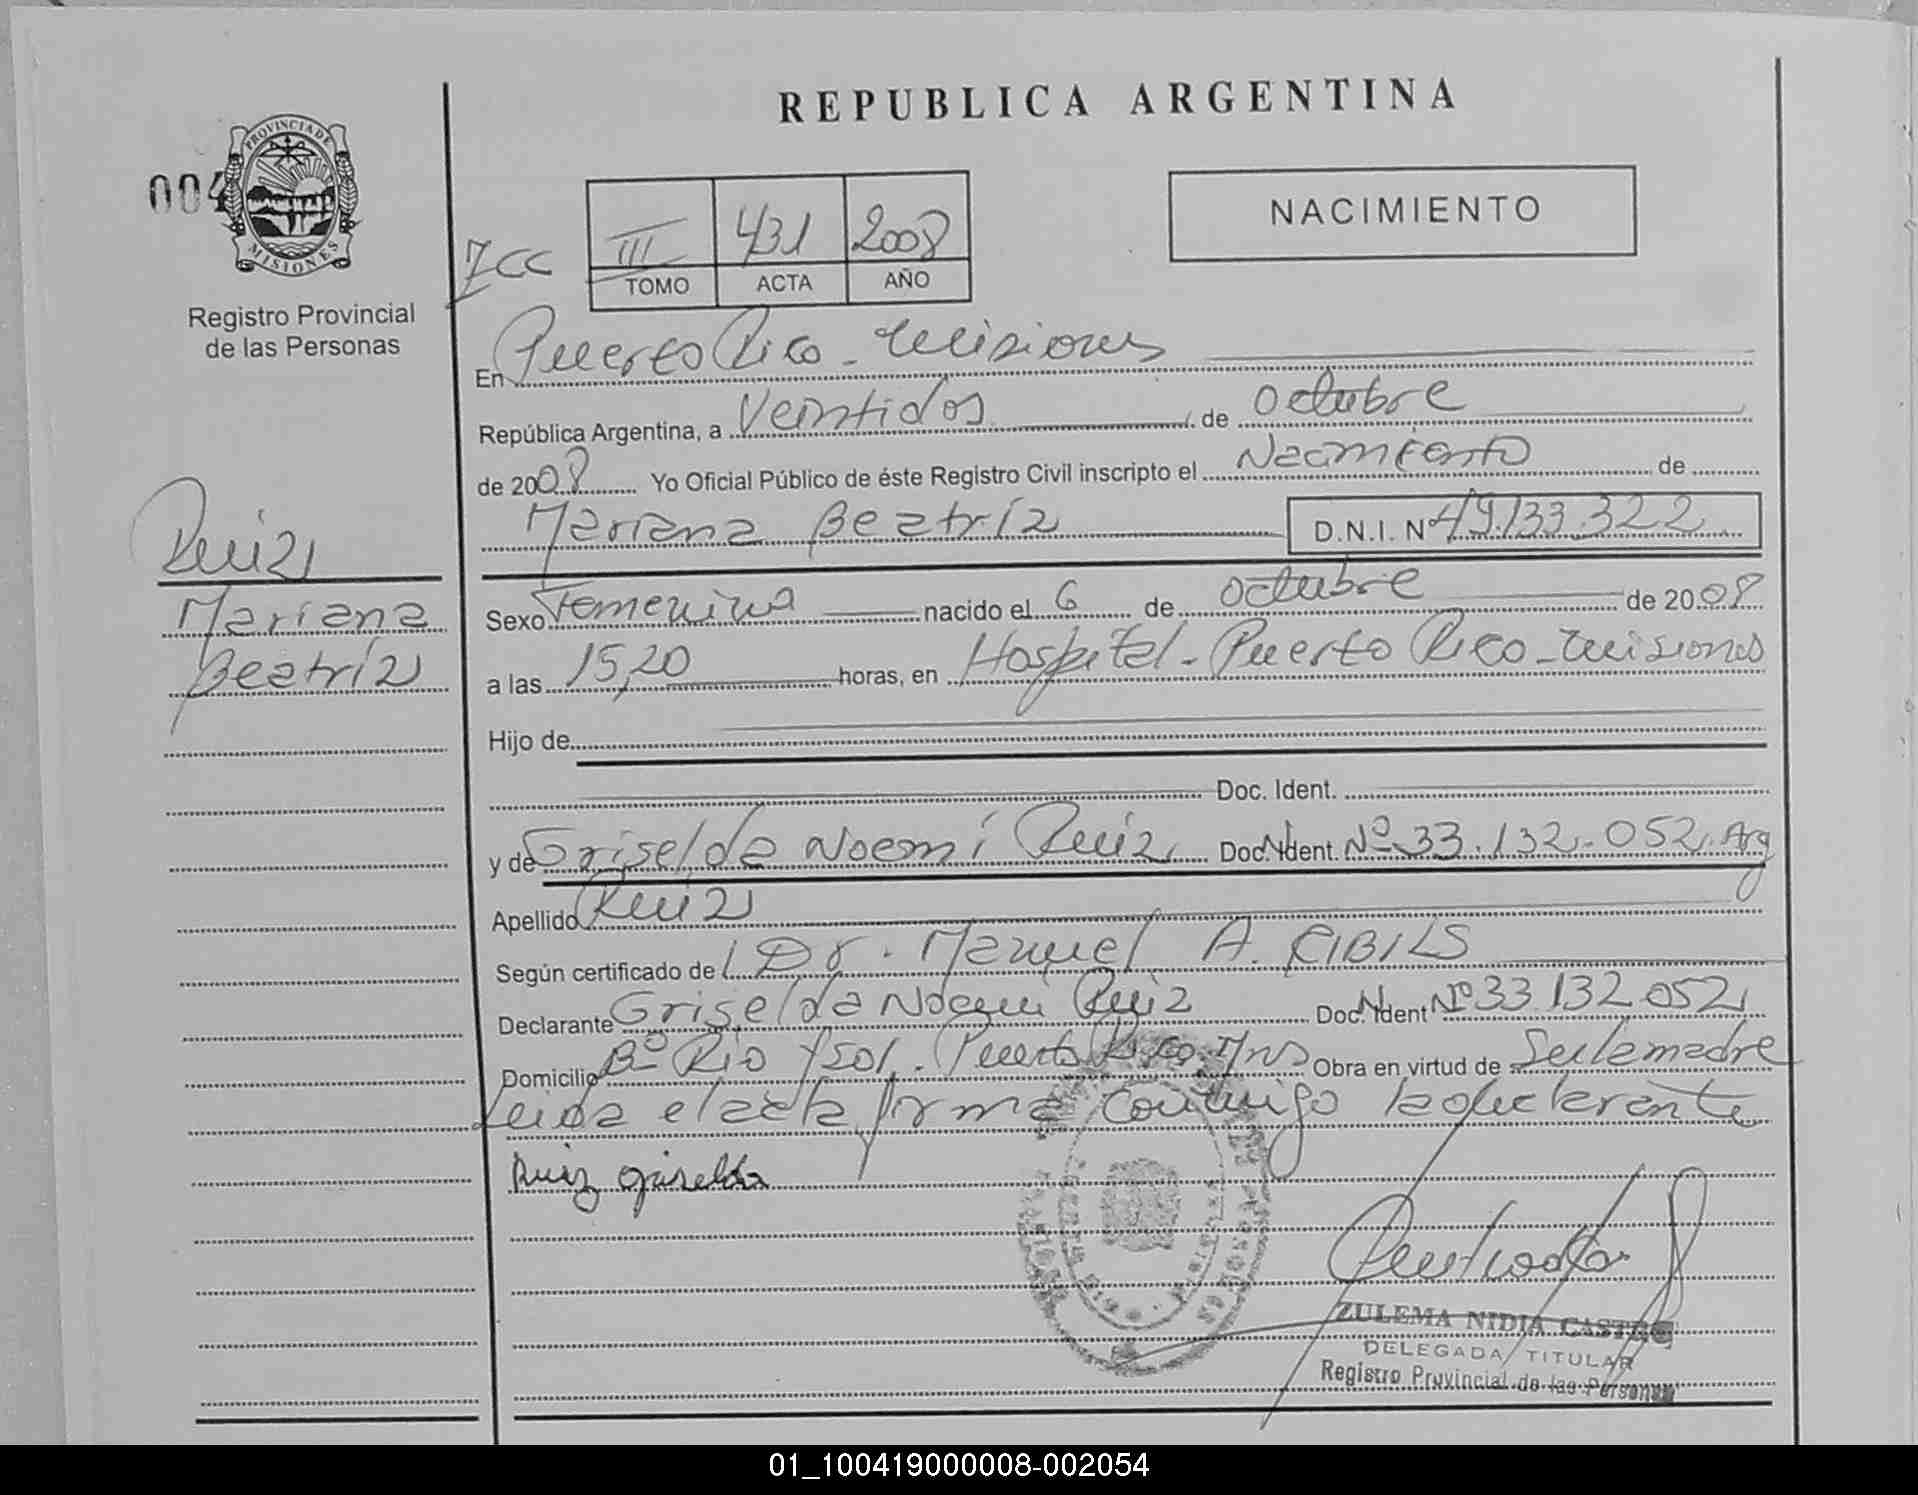 REPUBLICA ARGENTINA
PROVINCIA DE
MISIONES
004
Registro Provincial
de las Personas
III 431 2008
TOMO ACTA AÑO
NACIMIENTO
En Puerto Rico - Misiones
República Argentina, a Veintidos de octubre
de 2008 Yo Oficial Público de éste Registro Civil inscripto el Nacimiento de
Mariana Beatríz D.N.I. Nº 49.133.322
Ruiz
Mariana
Beatríz
Sexo Femenina nacido el 6 de octubre de 2008
a las 15,20 horas, en Hospital - Puerto Rico - Misiones
Hijo de
Doc. Ident.
y de Griselda Noemí Ruiz Doc. Ident. Nº 33.132.052 Arg
Apellido Ruiz
Según certificado de Dr. Manuel A. CIBILS
Declarante Griselda Noemi Ruiz Doc. Ident Nº 33.132.052
Domicilio Bº Rio y sol. Puerto Rico. Mns Obra en virtud de Ser la madre
Leida el acta firma conmigo la declarante
Ruiz Griselda
ZULEMA NIDIA CASTRO
DELEGADA TITULAR
Registro Provincial de las Personas
01_100419000008-002054